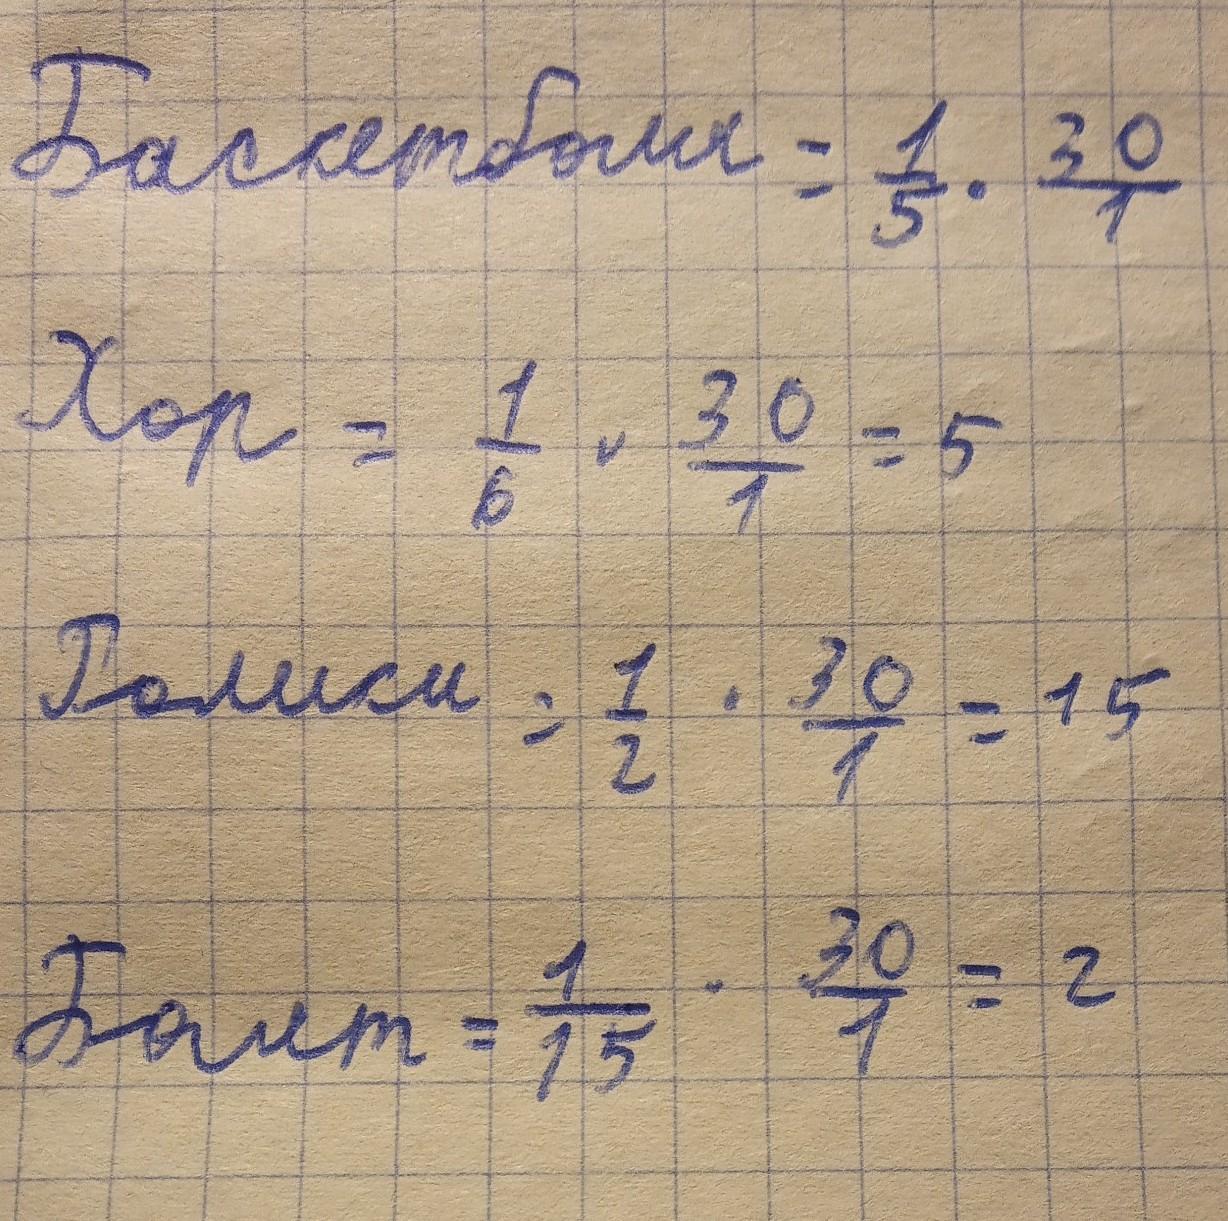 Баскетбол = 1/5 · 30/1
Хор = 1/6 · 30/1 = 5
Ролики = 1/2 · 30/1 = 15
Балет = 1/15 · 30/1 = 2